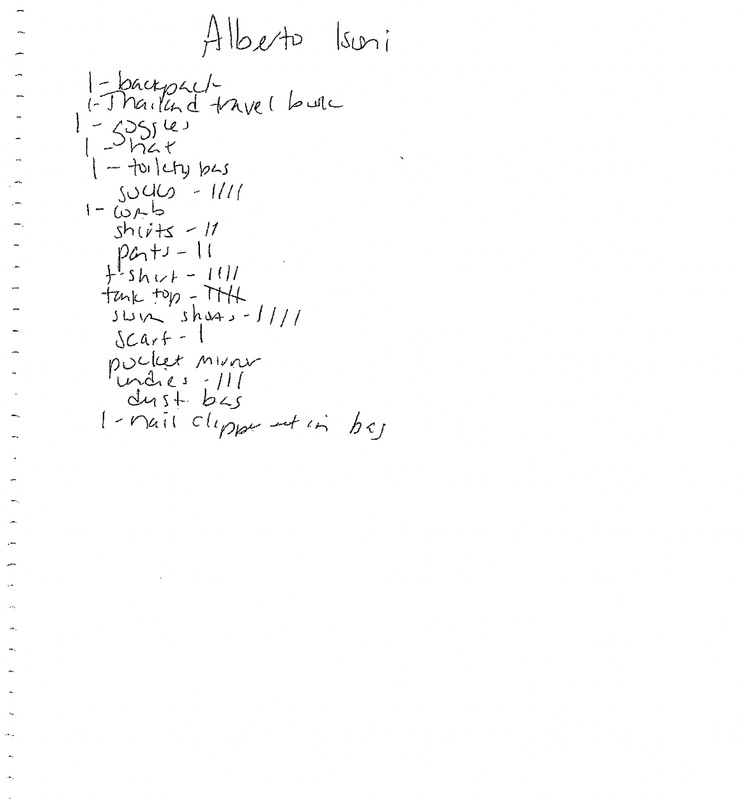 Alberto Isuni
1 - backpack
1 - Thailand travel book
1 - goggles
1 - hat
1 - toiletry bag
socks - ||||
1 - comb
shirts - ||
pants - ||
t-shirt - ||||
tank top - ̶|̶|̶|̶|
swim shorts - ||||
scarf - |
pocket mirror
undies - |||
dust bag
1 - nail clipper in bag